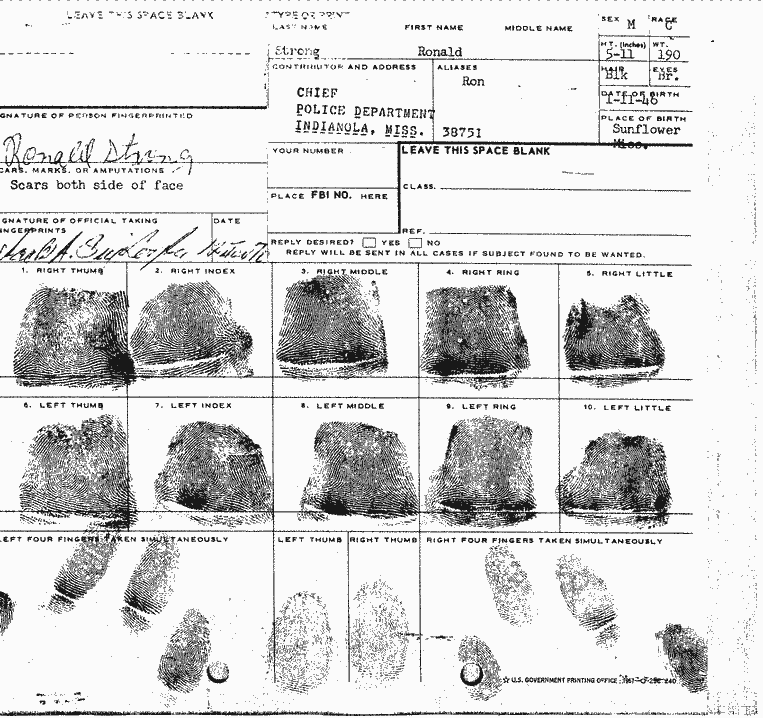 LEAVE THIS SPACE BLANK
TYPE OR PRINT
LAST NAME FIRST NAME MIDDLE NAME
Strong Ronald
SEX M
RACE C
HT. (Inches) WT.
5-11 190
HAIR EYES
Blk Br.
DATE OF BIRTH
1-11-46
PLACE OF BIRTH
Sunflower
Miss.
CONTRIBUTOR AND ADDRESS
CHIEF
POLICE DEPARTMENT
INDIANOLA, MISS. 38751
ALIASES
Ron
GNATURE OF PERSON FINGERPRINTED
Ronald Strong
CARS, MARKS, OR AMPUTATIONS
Scars both side of face
GNATURE OF OFFICIAL TAKING
NGERPRINTS
DATE
YOUR NUMBER
PLACE FBI NO. HERE
LEAVE THIS SPACE BLANK
CLASS.
REF.
REPLY DESIRED? YES NO
REPLY WILL BE SENT IN ALL CASES IF SUBJECT FOUND TO BE WANTED.
1. RIGHT THUMB 2. RIGHT INDEX 3. RIGHT MIDDLE 4. RIGHT RING 5. RIGHT LITTLE
6. LEFT THUMB 7. LEFT INDEX 8. LEFT MIDDLE 9. LEFT RING 10. LEFT LITTLE
LEFT FOUR FINGERS TAKEN SIMULTANEOUSLY LEFT THUMB RIGHT THUMB RIGHT FOUR FINGERS TAKEN SIMULTANEOUSLY
☆ U.S. GOVERNMENT PRINTING OFFICE